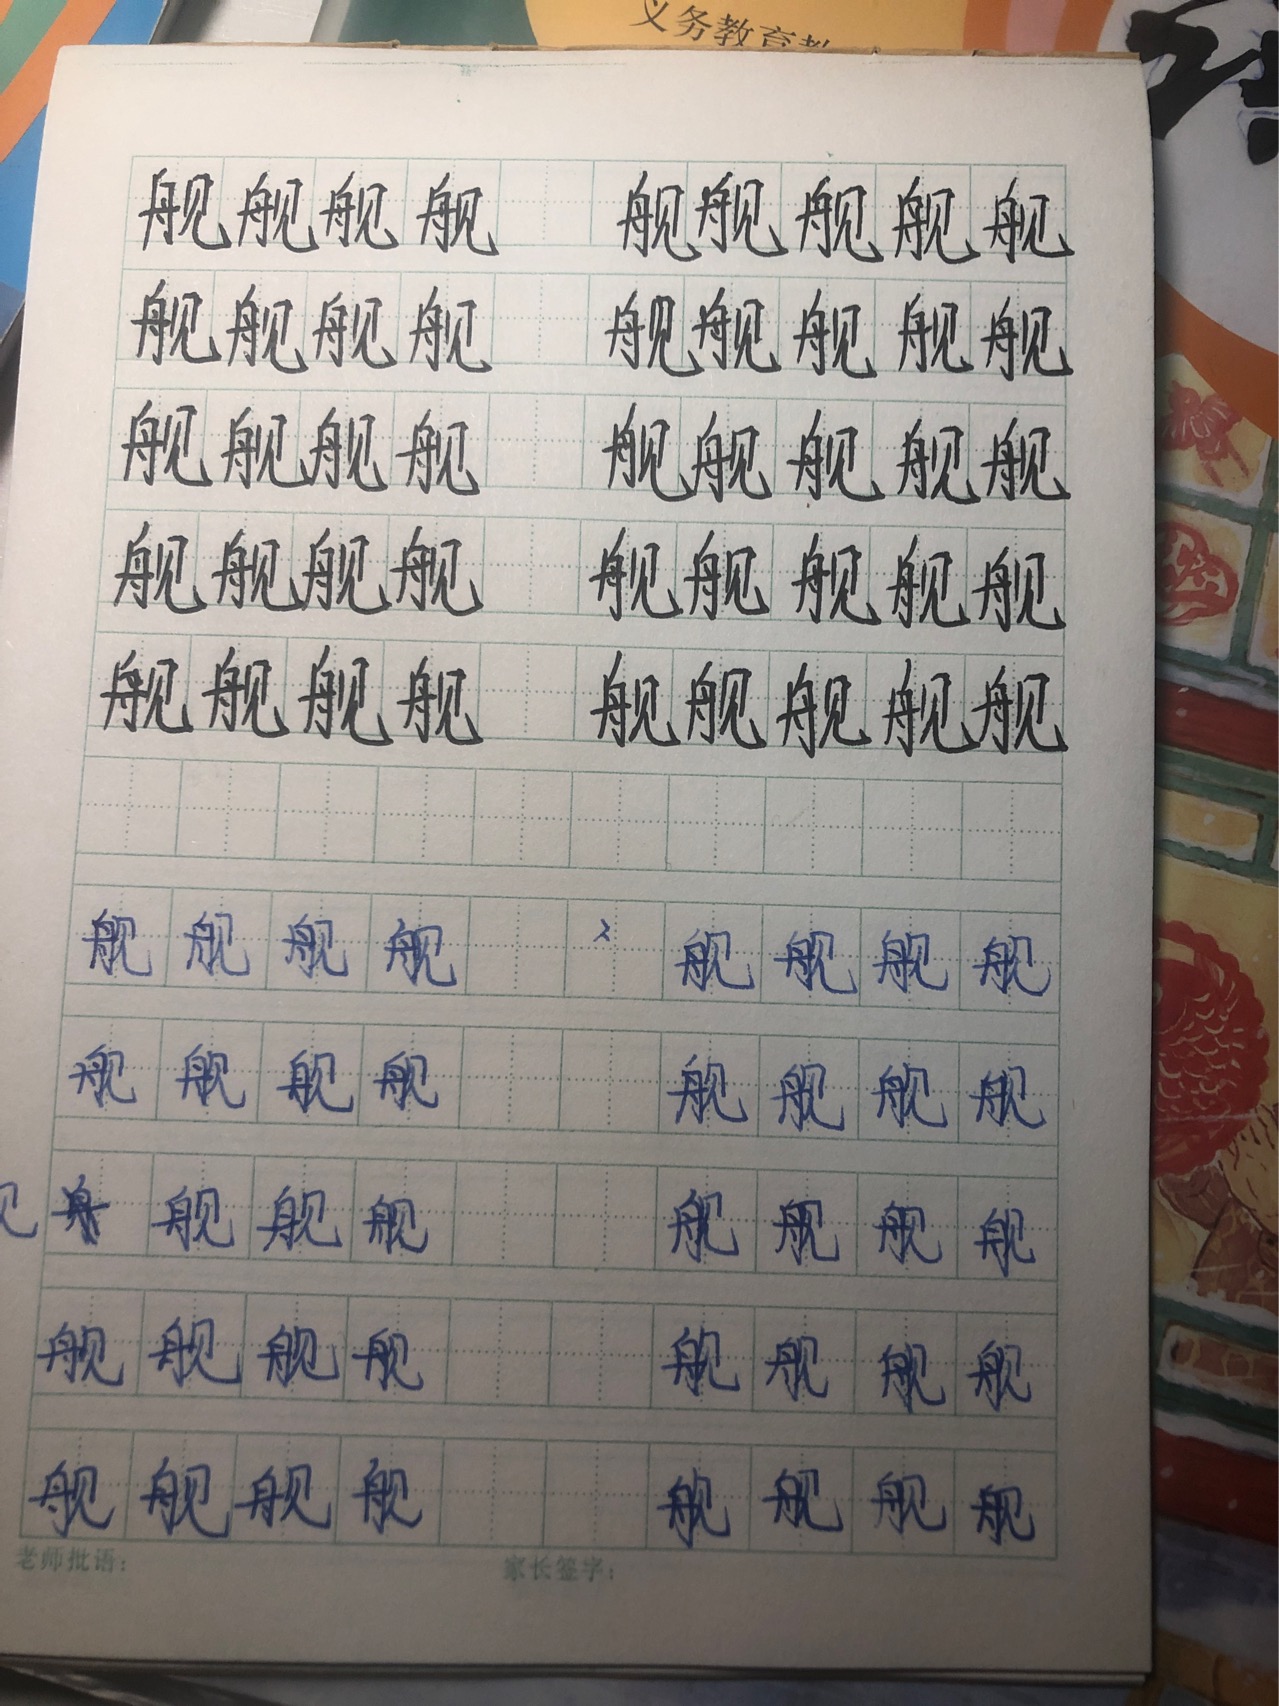 义务教育教
舰舰舰舰 舰舰舰舰舰
舰舰舰舰 舰舰舰舰舰
舰舰舰舰 舰舰舰舰舰
舰舰舰舰 舰舰舰舰舰
舰舰舰舰 舰舰舰舰舰
舰舰舰舰 舰舰舰舰
舰舰舰舰 舰舰舰舰
舰舰舰 舰舰舰舰
舰舰舰舰 舰舰舰舰
舰舰舰舰 舰舰舰舰
老师批语： 家长签字：